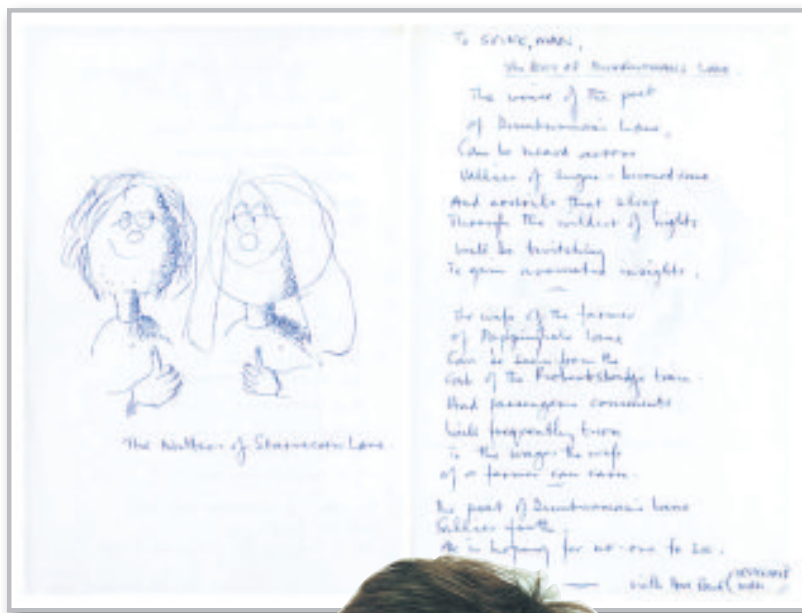 The Mother of Starvecrow Lane
To SPIKE, MAN,
The Poet of Dumbwoman's Lane
The voice of the poet
of Dumbwoman's Lane,
Can be heard across
Valleys of sugar-burned cane
And nostrils that sleep
Through the wildest of nights
Will be twitching
To gain aromatic insights.
The wife of the farmer
of Poppinghole Lane
Can be seen from the
Cab of the Robertsbridge train.
And passengers comments
Will frequently turn
To the wages the wife
of a farmer can earn.
The poet of Dumbwoman's Lane
Sallies forth.
He is hoping for no-one to
with Paul